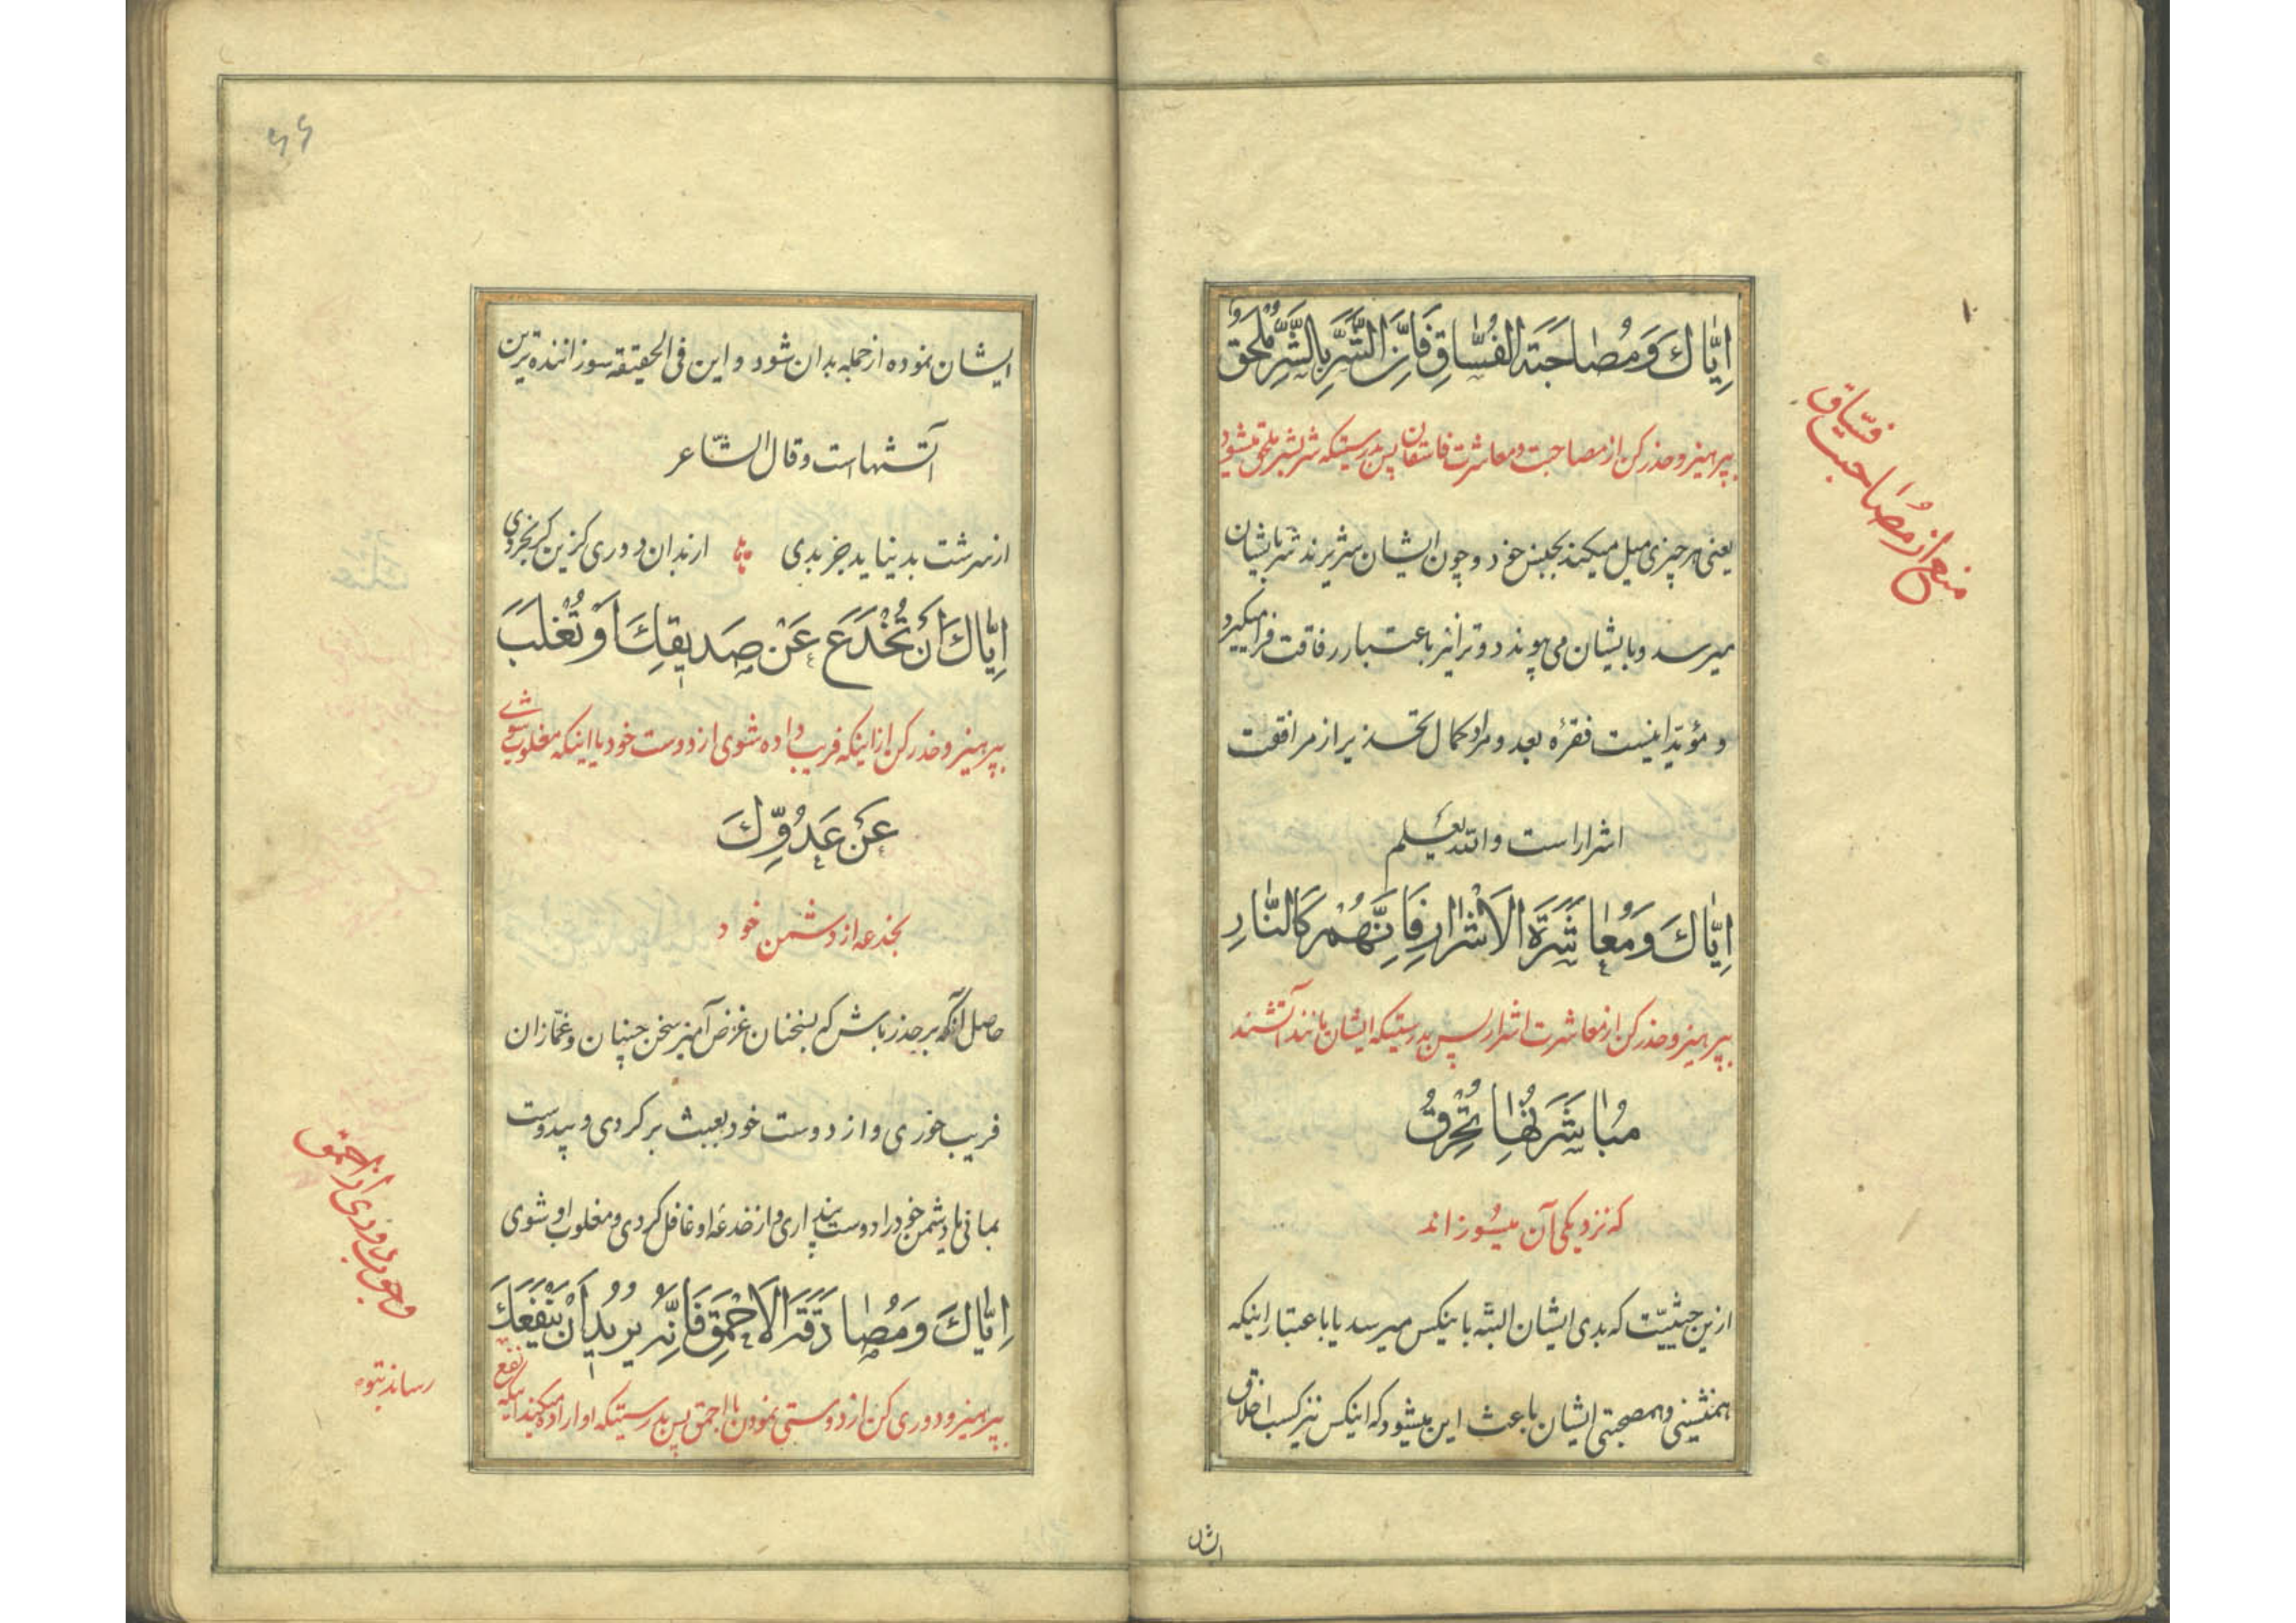 اِیّاكَ وَمُصٰاحَبَةَ الفُسّٰاقِ فَاِنَّ الشَّرَّ بِالشَّرِّ مُلْحَقٌ
بپرهیز و حذر کن از مصاحبت و معاشرت فاسقان پس بدرستیکه شر بشر ملحق میشود
یعنی هر چیزی میل میکند بجنس خود و چون ایشان شریرند شر بایشان
میرسد و بایشان می‌پیوندد و ترا نیز باعتبار رفاقت فرا میگیرد
و مؤید اینست فقرۀ بعد و مراد کمال تحذیر از مرافقت
اشرار است والله یعلم
اِیّاكَ وَمُعٰاشَرَةَ الاَشْرٰارِ فَاِنَّهُمْ كَالنّٰارِ
بپرهیز و حذر کن از معاشرت اشرار پس بدرستیکه ایشان مانند آتشند
مُبٰاشَرَتُهٰا تُحْرِقُ
که نزدیکی آن میسوزاند
ازین حیثیّت که بدی ایشان البته باینکس میرسد یا باعتبار اینکه
همنشینی و همصحبتی ایشان باعث این میشود که اینکس نیز کسب اخلاق
منع از مُصَاحبت فسّاق
ایشان نموده از جمله بدان شود و این فی الحقیقة سوزاننده‌ترین
آتشهاست وقال الشّاعر
از سرشت بد نیاید جز بدی از بدان دوری گزین گر بخردی
اِیّاكَ اَنْ تُخْدَعَ عَنْ صَدیقِكَ اَوْ تُغْلَبَ
بپرهیز و حذر کن از اینکه فریب داده شوی از دوست خود یا اینکه مغلوب شوی
عَنْ عَدُوِّكَ
بخدعه از دشمن خود
حاصل آنکه بر حذر باش که بسخنان غرض آمیز سخن چینان و غمّازان
فریب خوری و از دوست خود بعبث برگردی و بیدوست
بمانی یا دشمن خود را دوست پنداری و از خدعۀ او غافل گردی و مغلوب او شوی
اِیّاكَ وَمُصٰادَقَةَ الاَحْمَقِ فَاِنَّهُ یُریدُ اَنْ یَنْفَعَكَ
بپرهیز و دوری کن از دوستی نمودن با احمق پس بدرستیکه او اراده میکند اینکه نفع
رساند بتو
وجوب دوری از احمق